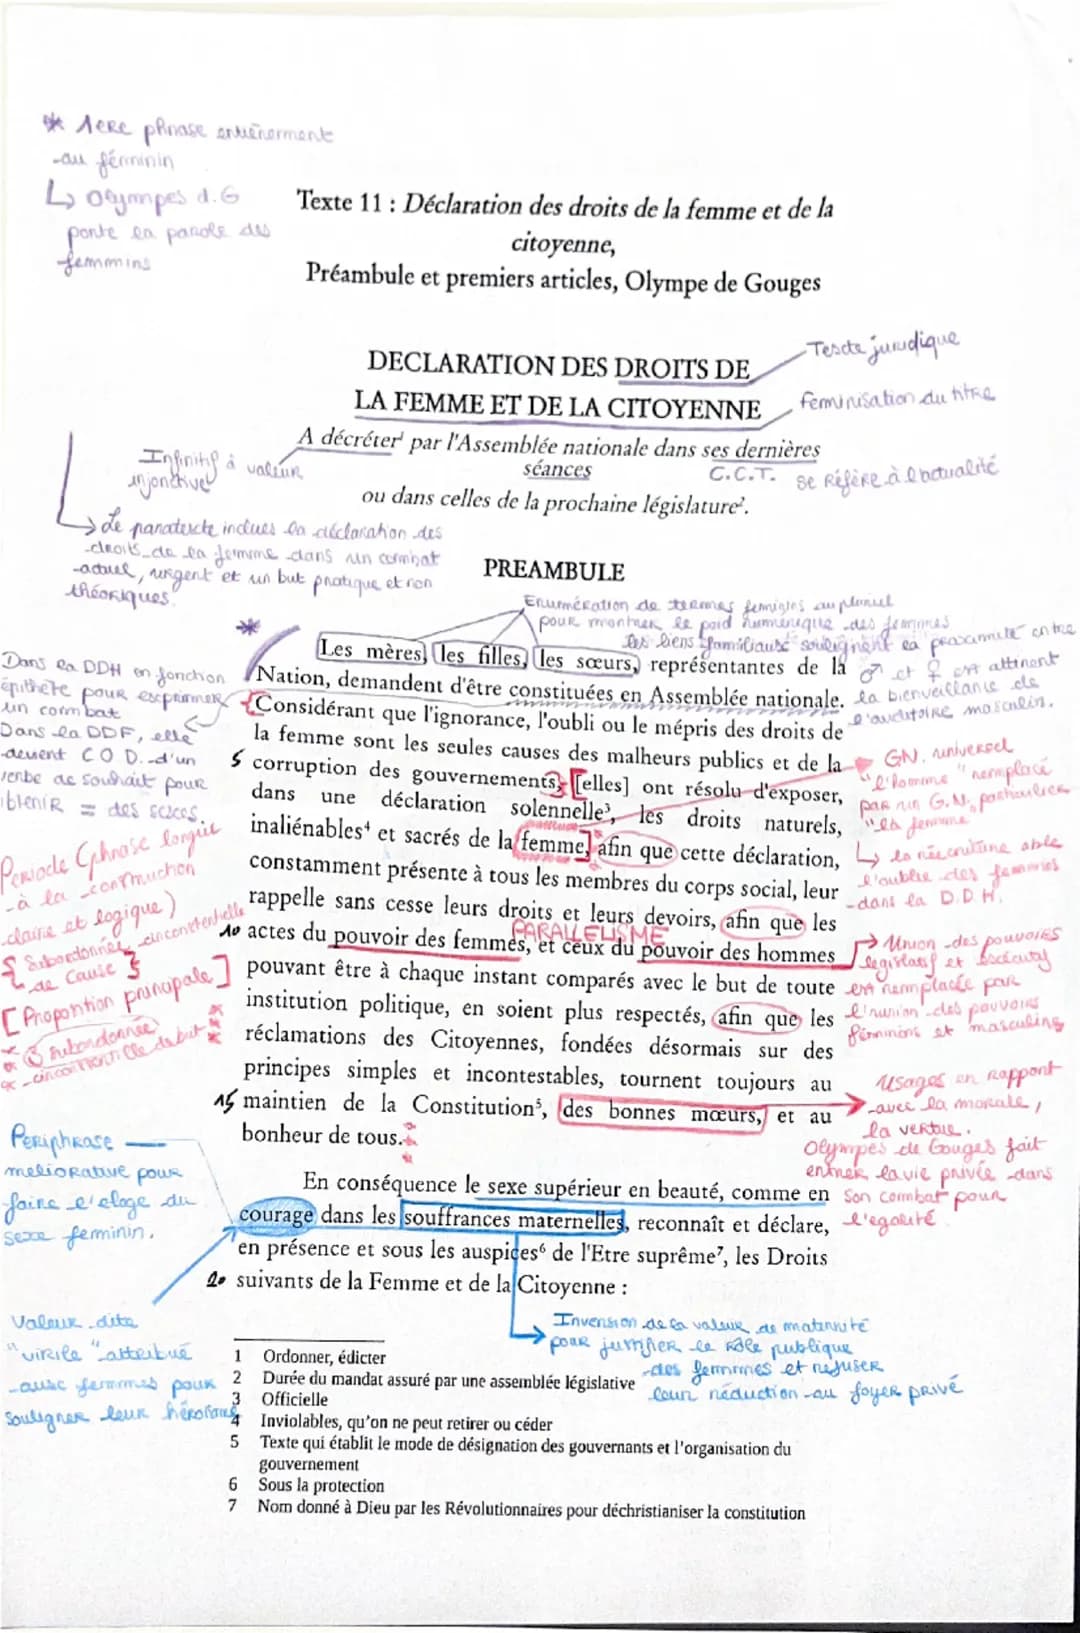 * 1ere phrase entièrement
au féminin
↳ Olympes d.G
porte la parole des
femmins
Texte 11 : Déclaration des droits de la femme et de la
citoyenne,
Préambule et premiers articles, Olympe de Gouges
DECLARATION DES DROITS DE
LA FEMME ET DE LA CITOYENNE
Texte juridique
Feminisation du titre
A décréter¹ par l'Assemblée nationale dans ses dernières
séances
ou dans celles de la prochaine législature².
Infinitif à valeur
injonctive
C.C.T. se Réfère à l'actualité
→ Le paratexte inclues la déclaration des
droits de la femme dans un combat
actuel, urgent et un but pratique et non
théoriques.
PREAMBULE
Enumération de termes feminins au pluriel
pour montrer le poid numérique des femmes
les liens familiaux soulignent la proximité entre
♂ et ♀ en attirent
la bienveillance de
l'auditoire masculin.
*
Les mères, les filles, les sœurs, représentantes de la
Nation, demandent d'être constituées en Assemblée nationale.
{Considérant que l'ignorance, l'oubli ou le mépris des droits de
la femme sont les seules causes des malheurs publics et de la
5 corruption des gouvernements,} [elles] ont résolu d'exposer,
dans une déclaration solennelle³, les droits naturels,
inaliénables⁴ et sacrés de la femme,] afin que cette déclaration,
constamment présente à tous les membres du corps social, leur
rappelle sans cesse leurs droits et leurs devoirs, afin que les
PARALLELISME
10 actes du pouvoir des femmes, et ceux du pouvoir des hommes
pouvant être à chaque instant comparés avec le but de toute
institution politique, en soient plus respectés, afin que les
réclamations des Citoyennes, fondées désormais sur des
principes simples et incontestables, tournent toujours au
15 maintien de la Constitution⁵, des bonnes mœurs, et au
bonheur de tous.
Dans la DDH en fonction
épithète pour exprimer
un combat
Dans la DDF, elle
devient C O D. d'un
verbe de souhait pour
obtenir = des sexes.
Periode (phrase longue
à la construction
claire et logique)
{ Subordonnée circonstentielle
de Cause }
[ Proposition principale ]
③ subordonnée
circonstentielle de but
GN. universel
"l'homme" remplacé
par un G.N. particulier
"la femme"
↳
l'oublie des femmes
dans la D.D.H.
→ Union des pouvoirs
legislatif et
est remplacée par
l'union des pouvoirs
féminins et masculins
Usages en Rapport
avec la morale,
la vertue.
Olympes de Gouges fait
entrer la vie privée dans
son combat pour
l'egalité
En conséquence le sexe supérieur en beauté, comme en
courage dans les souffrances maternelles, reconnaît et déclare,
en présence et sous les auspices⁶ de l'Etre suprême⁷, les Droits
20 suivants de la Femme et de la Citoyenne :
Periphrase
meliorative pour
faire l'eloge du
sexe feminin.
Valeur dite
"virile" attribué
aux femmes pour
souligner leur héroïsme
Inversion de la valeur de maternité
pour justifier le rôle publique
des femmes et refuser
leur réduction au foyer privé
1 Ordonner, édicter
2 Durée du mandat assuré par une assemblée législative
3 Officielle
4 Inviolables, qu'on ne peut retirer ou céder
5 Texte qui établit le mode de désignation des gouvernants et l'organisation du
gouvernement
6 Sous la protection
7 Nom donné à Dieu par les Révolutionnaires pour déchristianiser la constitution